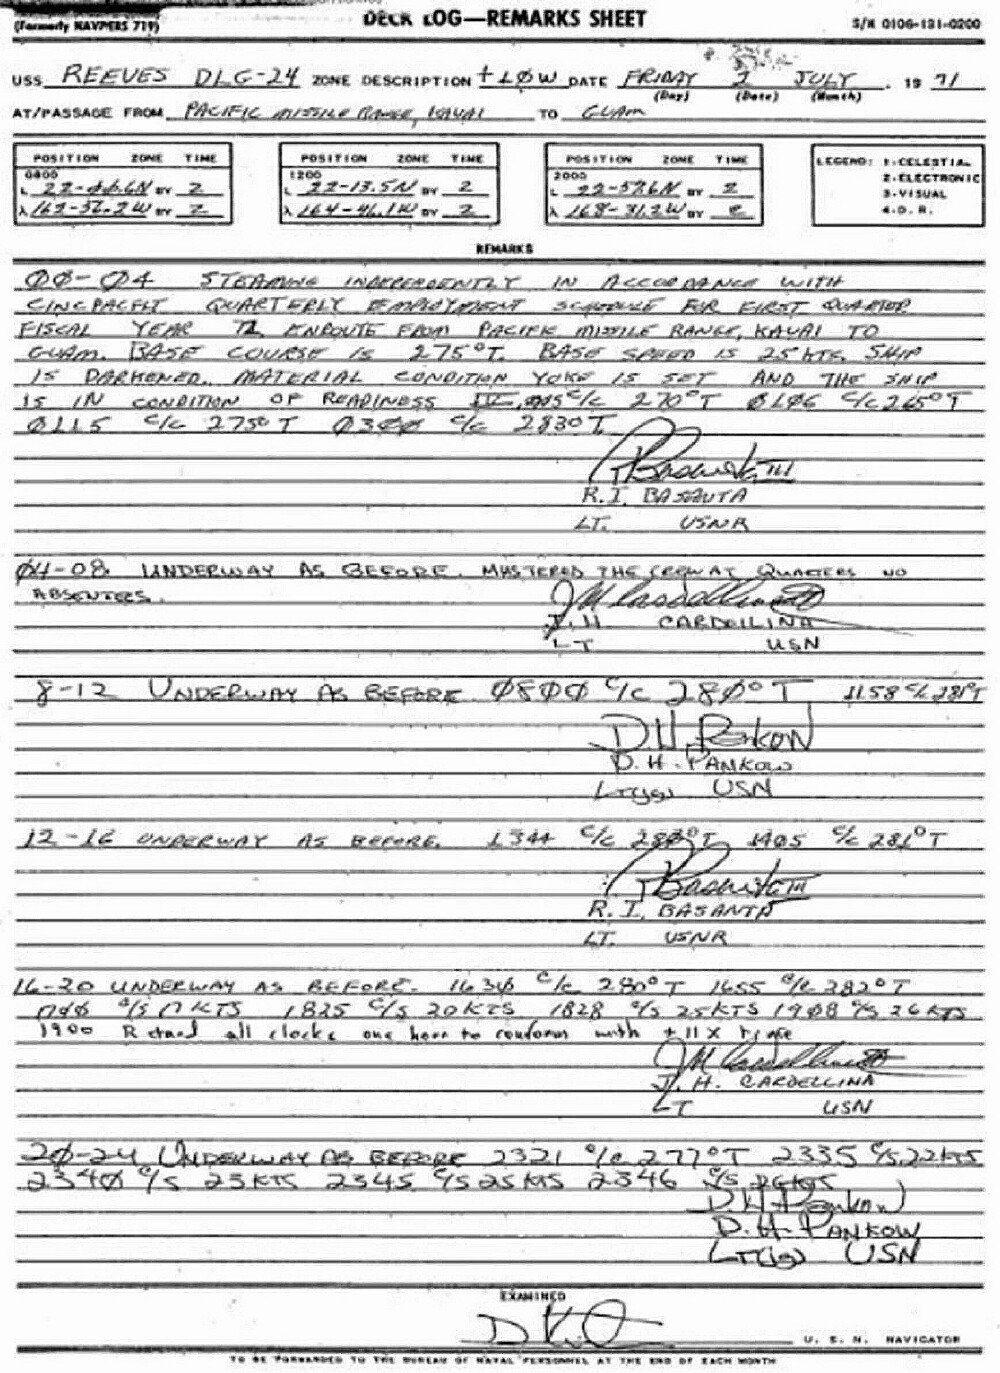 (Formerly NAVPERS 719)
DECK LOG—REMARKS SHEET
S/N 0106-131-0200
USS REEVES DLG-24 ZONE DESCRIPTION +10W DATE FRIDAY 2 JULY 19 71
(Day) (Date) (Month)
AT/PASSAGE FROM PACIFIC MISSILE RANGE, KAUAI TO GUAM
POSITION ZONE TIME
0800
L BY 2
λ BY 2
POSITION ZONE TIME
1200
L 22-13.5N BY 2
λ 164-46.1W BY 2
POSITION ZONE TIME
2000
L 22-57.6N BY 2
λ 168-31.2W BY 2
LEGEND: 1-CELESTIAL
2-ELECTRONIC
3-VISUAL
4-D.R.
REMARKS
00-04 STEAMING INDEPENDENTLY IN ACCORDANCE WITH
CINCPACFLT QUARTERLY EMPLOYMENT SCHEDULE FOR FIRST QUARTER
FISCAL YEAR 72 ENROUTE FROM PACIFIC MISSILE RANGE, KAUAI TO
GUAM. BASE COURSE IS 275°T. BASE SPEED IS 25 KTS. SHIP
IS DARKENED. MATERIAL CONDITION YOKE IS SET AND THE SHIP
IS IN CONDITION OF READINESS IV. C/C 270°T 0106 C/C 265°T
0115 C/C 275°T 0300 C/C 283°T
R. I. BASAUTA
LT. USNR
04-08 UNDERWAY AS BEFORE. MUSTERED THE CREW AT QUARTERS NO
ABSENTEES.
J. H. CARDELLINA
LT USN
8-12 UNDERWAY AS BEFORE 0800 C/C 280°T 1158 C/C 281°T
D. H. Pankow
D. H. PANKOW
LT(JG) USN
12-16 UNDERWAY AS BEFORE. 1344 C/C 283°T 1405 C/C 281°T
R. I. BASANTA
LT. USNR
16-20 UNDERWAY AS BEFORE. 1630 C/C 280°T 1655 C/C 282°T
1700 C/S 17 KTS 1825 C/S 20 KTS 1828 C/S 25 KTS 1908 C/S 26 KTS
1900 Retard all clocks one hour to conform with +11X time
J. H. CARDELLINA
LT USN
20-24 UNDERWAY AS BEFORE 2321 C/C 277°T 2335 C/S 22 KTS
2340 C/S 23 KTS 2345 C/S 25 KTS 2346 C/S 26 KTS
D. H. Pankow
D. H. PANKOW
LT(JG) USN
EXAMINED
U. S. N. NAVIGATOR
TO BE FORWARDED TO THE BUREAU OF NAVAL PERSONNEL AT THE END OF EACH MONTH